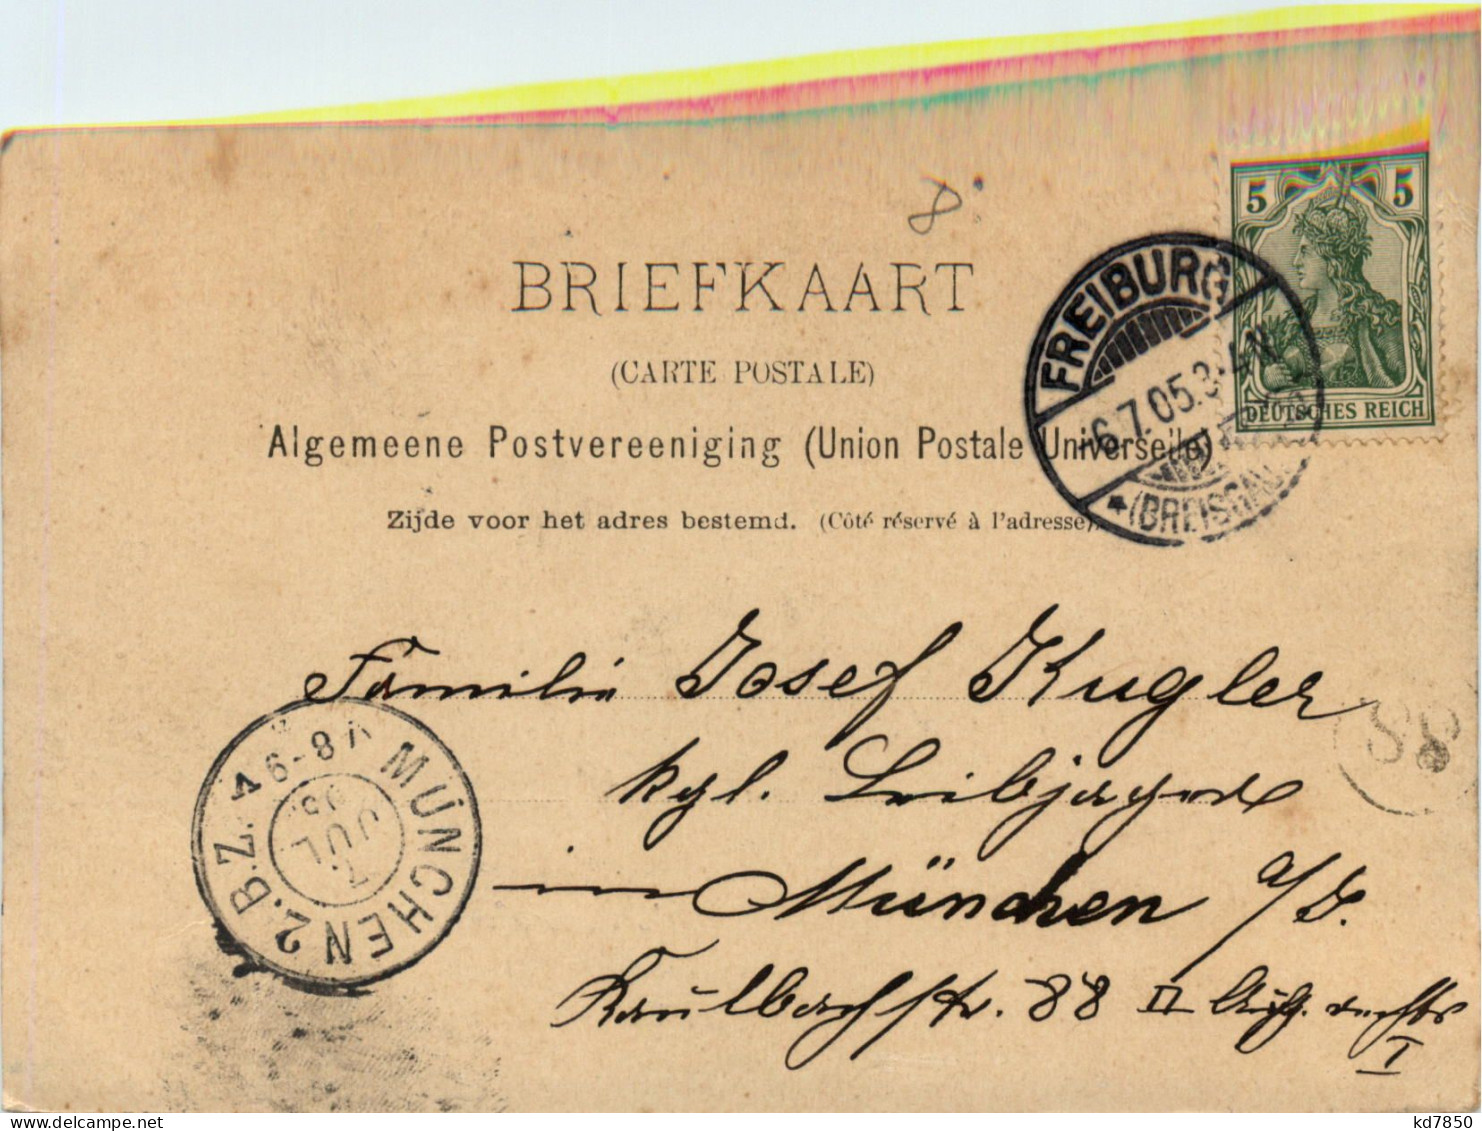 8
BRIEFKAART
(CARTE POSTALE)
Algemeene Postvereeniging (Union Postale Universelle)
Zijde voor het adres bestemd. (Côté réservé à l'adresse).
5 5
DEUTSCHES REICH
FREIBURG
6.7.05.3-4N
* (BREISGAU)
Familie Josef Kugler
kgl. Leibjäger
in München a/I.
Kaulbachstr. 88 II Aufg. rechts
I
88
MÜNCHEN 2.B.Z.
V 6-8 V
7. JUL 05
kd7850